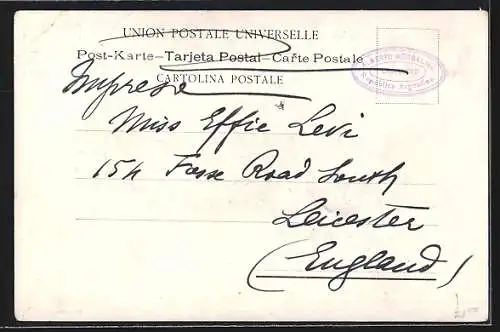 UNION POSTALE UNIVERSELLE
Post-Karte–Tarjeta Postal–Carte Postale
CARTOLINA POSTALE
Impreso
Miss Effie Levi
154 Fosse Road South
Leicester
(England)
República Argentina